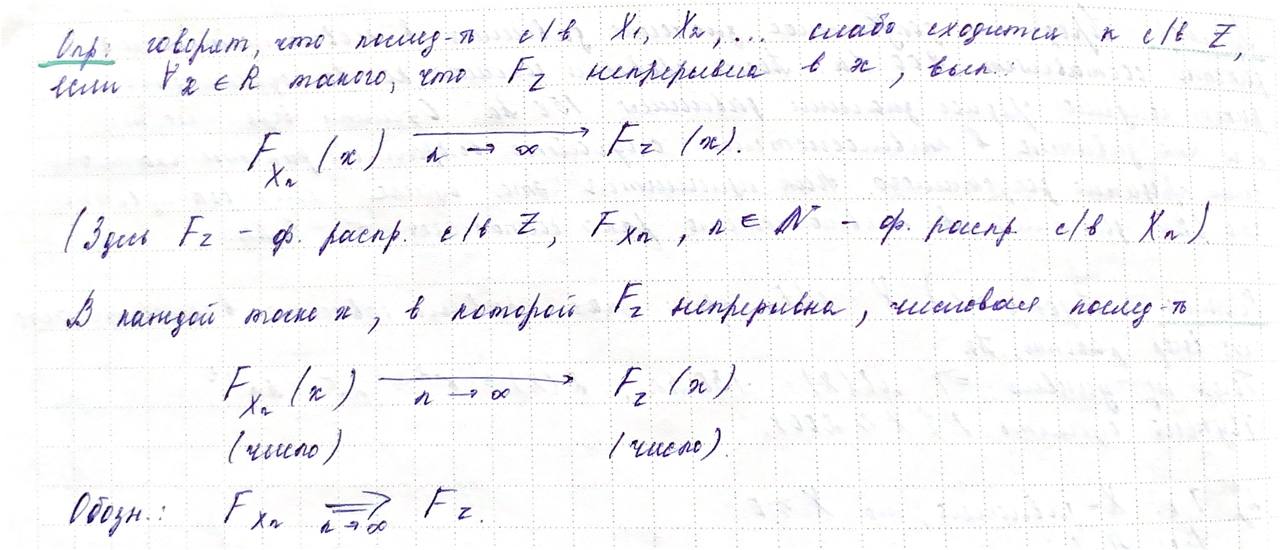 Опр говорят, что послед-ть с/в X₁, X₂, ... слабо сходится к с/в Z,
если ∀x ∈ R такого, что F_Z непрерывна в x, вып.
F_{X_n}(x) →_{n→∞} F_Z(x).
(Здесь F_Z – ф. распр. с/в Z, F_{X_n}, n ∈ N – ф. распр с/в X_n)
В каждой точке x, в которой F_Z непрерывна, числовая послед-ть
F_{X_n}(x) →_{n→∞} F_Z(x)
(число) (число).
Обозн.: F_{X_n} ⇒_{n→∞} F_Z.